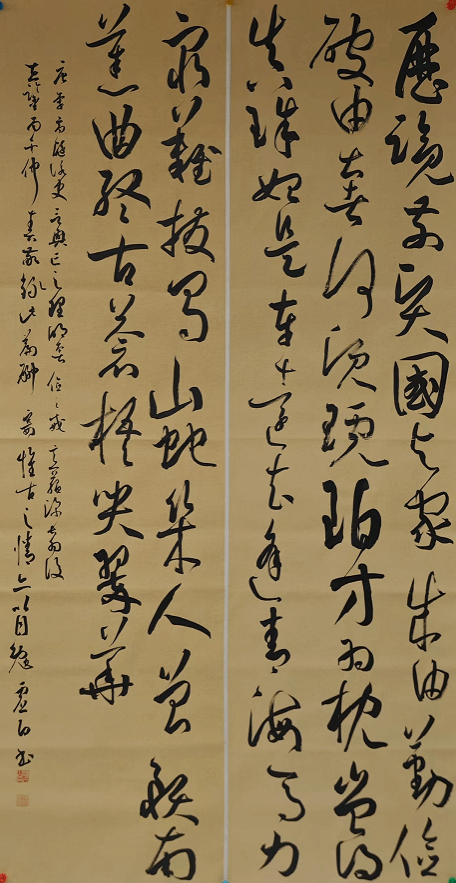 歷覽前賢國與家成由勤儉
破由奢何須琥珀方為枕豈得
真珠始是車運去不逢青海馬力
窮難拔蜀山蛇幾人曾預南
薰曲終古蒼梧哭翠華
唐李商隱詠史言興亡之理明奢儉之戒
丙午仲 錄此 懷古之情